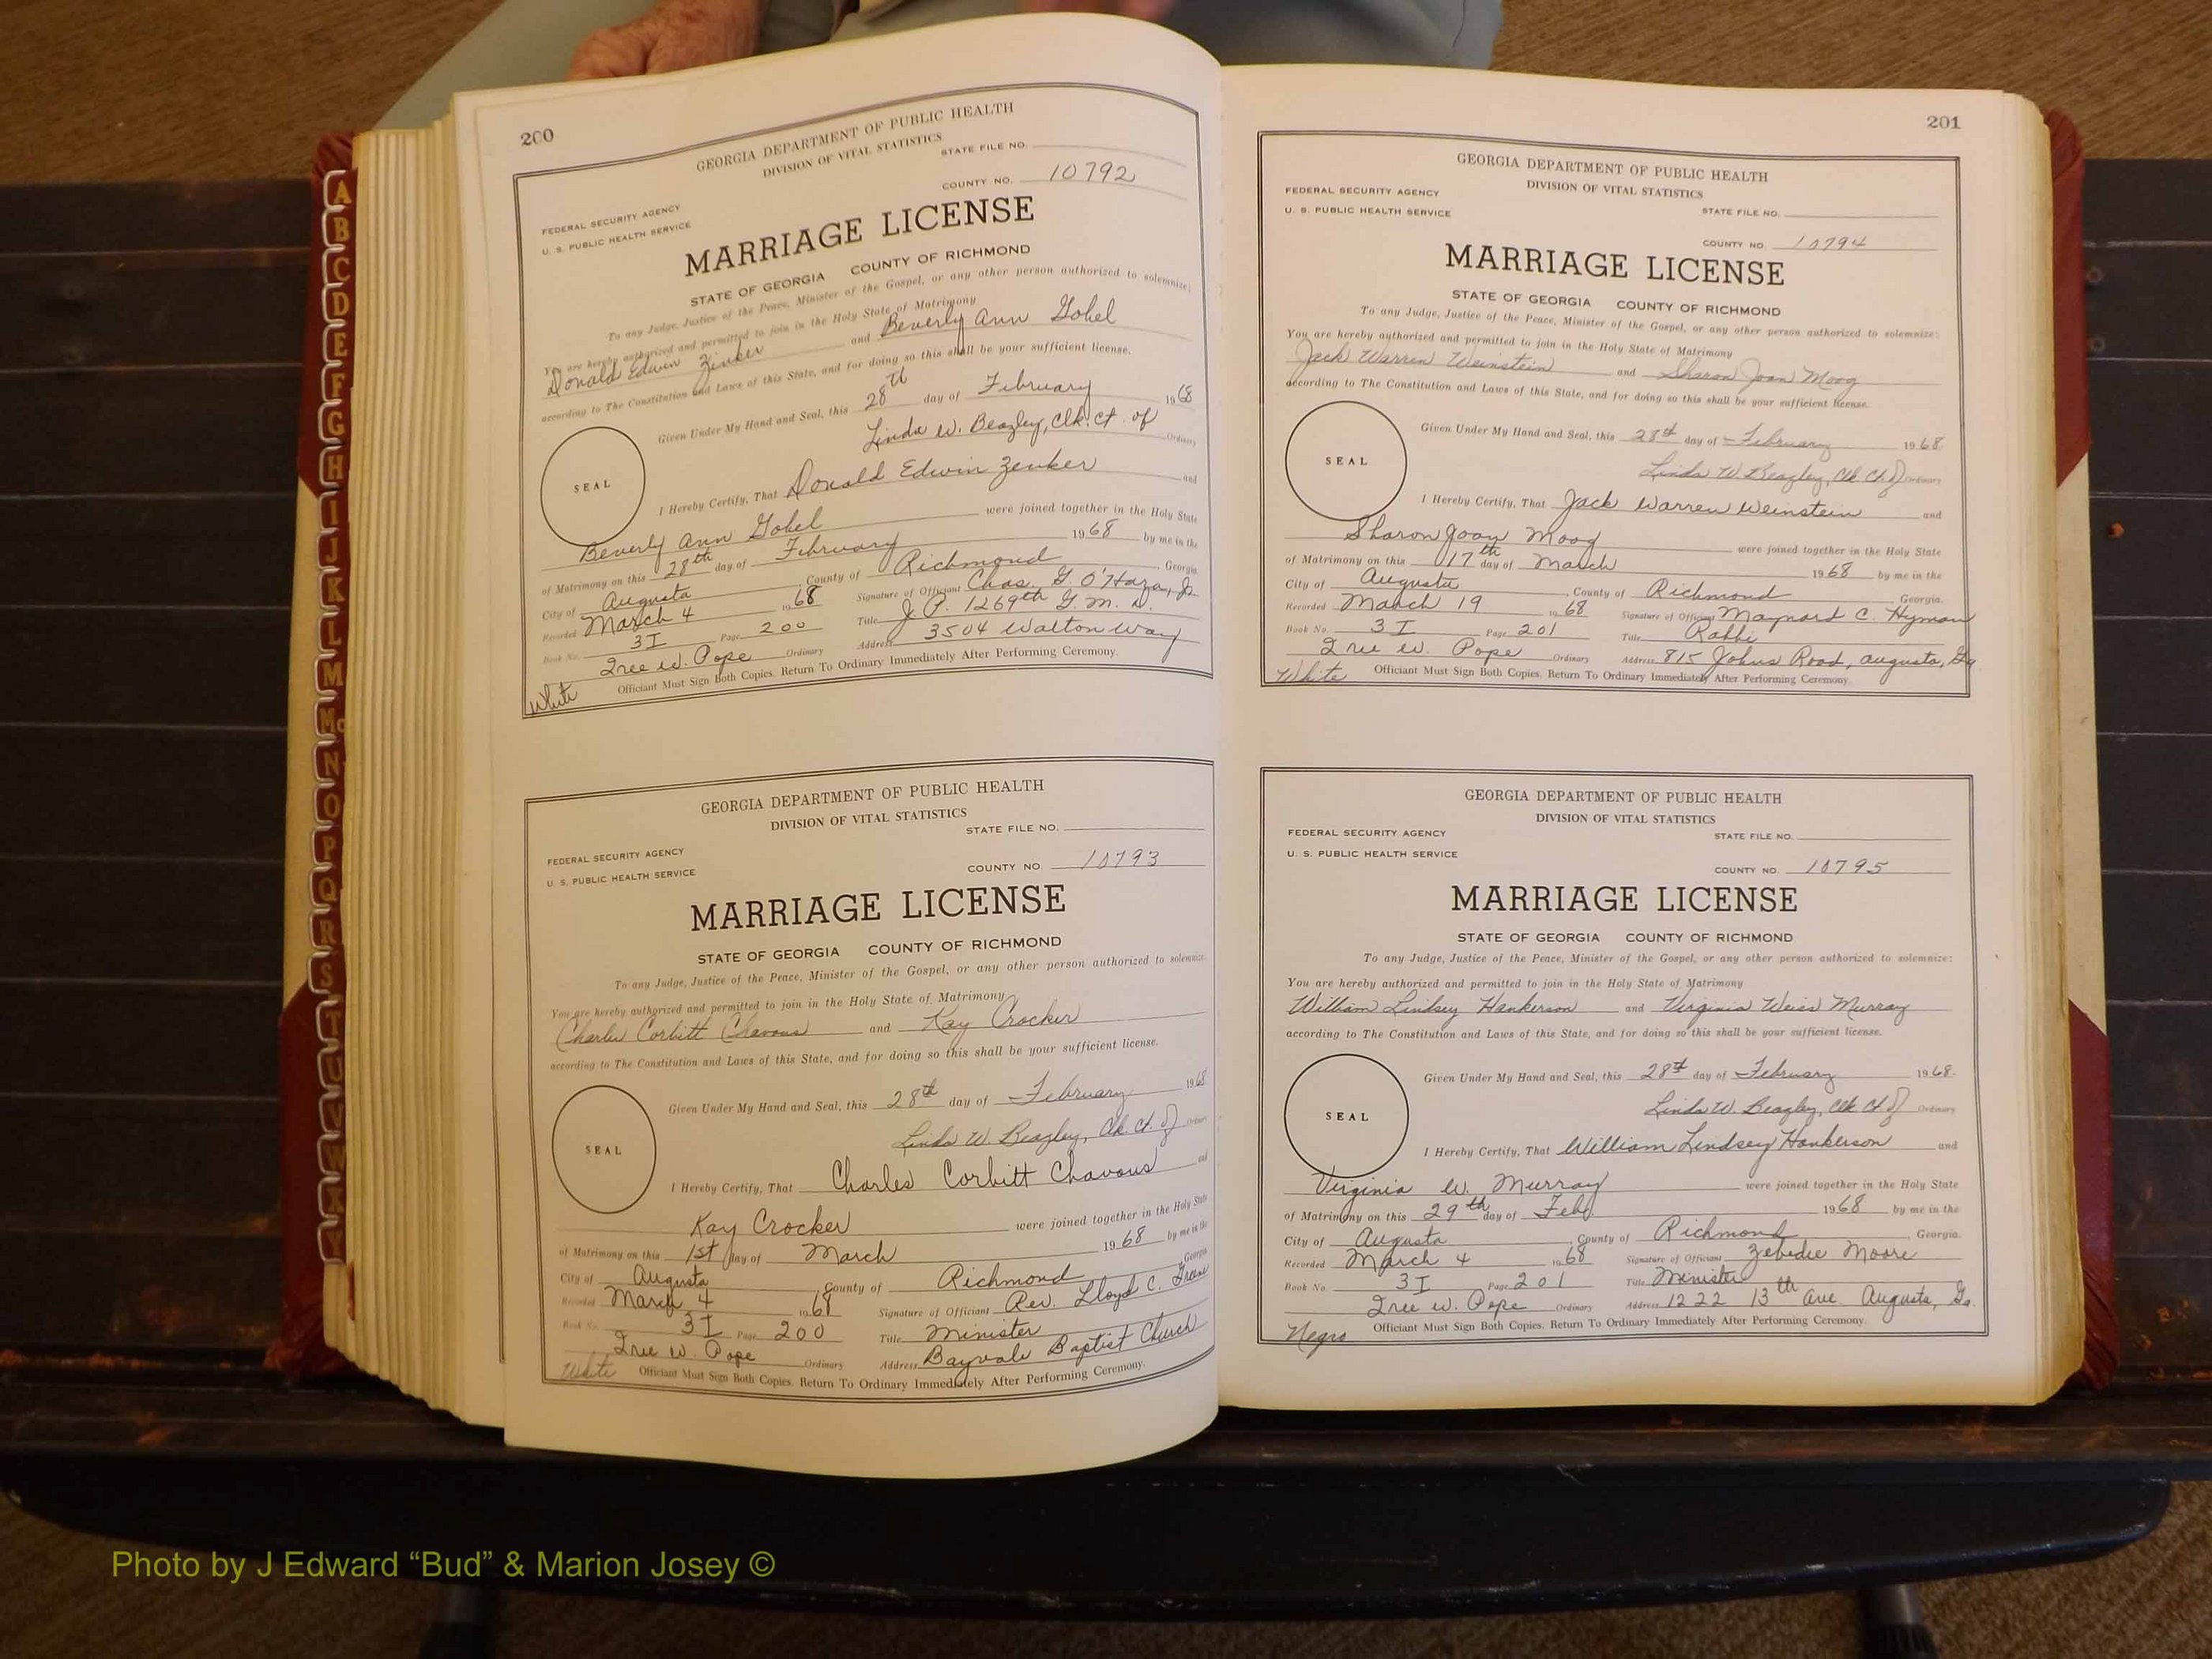 A
B
C
D
E
F
G
H
I
J
K
L
M
Mc
N
O
P
Q
R
S
T
U
V
W
X
Y
200
GEORGIA DEPARTMENT OF PUBLIC HEALTH
DIVISION OF VITAL STATISTICS
STATE FILE NO.
COUNTY NO. 10792
FEDERAL SECURITY AGENCY
U. S. PUBLIC HEALTH SERVICE
MARRIAGE LICENSE
STATE OF GEORGIA COUNTY OF RICHMOND
To any Judge, Justice of the Peace, Minister of the Gospel, or any other person authorized to solemnize:
You are hereby authorized and permitted to join in the Holy State of Matrimony
Donald Edwin Zenker and Beverly Ann Gohel
according to The Constitution and Laws of this State, and for doing so this shall be your sufficient license.
Given Under My Hand and Seal, this 28th day of February 1968
Linda W. Beazley, Clk. Ct. of Ordinary
SEAL
I Hereby Certify, That Donald Edwin Zenker and
Beverly Ann Gohel were joined together in the Holy State
of Matrimony on this 28th day of February 1968 by me in the
City of Augusta County of Richmond Georgia.
Recorded March 4 1968 Signature of Officiant Chas. G. O'Hara, Jr.
Book No. 3I Page 200 Title J. P. 1269th G. M. D.
Iree W. Pope Ordinary Address 3504 Walton Way
White Officiant Must Sign Both Copies. Return To Ordinary Immediately After Performing Ceremony.
GEORGIA DEPARTMENT OF PUBLIC HEALTH
DIVISION OF VITAL STATISTICS
STATE FILE NO.
FEDERAL SECURITY AGENCY
U. S. PUBLIC HEALTH SERVICE
COUNTY NO. 10793
MARRIAGE LICENSE
STATE OF GEORGIA COUNTY OF RICHMOND
To any Judge, Justice of the Peace, Minister of the Gospel, or any other person authorized to solemnize
You are hereby authorized and permitted to join in the Holy State of Matrimony
Charles Corbitt Chavous and Kay Crocker
according to The Constitution and Laws of this State, and for doing so this shall be your sufficient license.
Given Under My Hand and Seal, this 28th day of February 1968
Linda W. Beazley, Clk. Ct. of Ordinary
SEAL
I Hereby Certify, That Charles Corbitt Chavous and
Kay Crocker were joined together in the Holy State
of Matrimony on this 1st day of March 1968 by me in the
City of Augusta County of Richmond Georgia
Recorded March 4 1968 Signature of Officiant Rev. Lloyd C. Greene
Book No. 3I Page 200 Title Minister
Iree W. Pope Ordinary Address Bayvale Baptist Church
White Officiant Must Sign Both Copies. Return To Ordinary Immediately After Performing Ceremony.
201
GEORGIA DEPARTMENT OF PUBLIC HEALTH
DIVISION OF VITAL STATISTICS
FEDERAL SECURITY AGENCY
U. S. PUBLIC HEALTH SERVICE
STATE FILE NO.
COUNTY NO. 10794
MARRIAGE LICENSE
STATE OF GEORGIA COUNTY OF RICHMOND
To any Judge, Justice of the Peace, Minister of the Gospel, or any other person authorized to solemnize:
You are hereby authorized and permitted to join in the Holy State of Matrimony
Jack Warren Weinstein and Sharon Joan Moog
according to The Constitution and Laws of this State, and for doing so this shall be your sufficient license.
Given Under My Hand and Seal, this 28th day of February 1968
Linda W. Beazley, Clk. Ct. of Ordinary
SEAL
I Hereby Certify, That Jack Warren Weinstein and
Sharon Joan Moog were joined together in the Holy State
of Matrimony on this 17th day of March 1968 by me in the
City of Augusta County of Richmond Georgia.
Recorded March 19 1968 Signature of Officiant Maynard C. Hyman
Book No. 3I Page 201 Title Rabbi
Iree W. Pope Ordinary Address 815 Johns Road, Augusta, Ga
White Officiant Must Sign Both Copies. Return To Ordinary Immediately After Performing Ceremony.
GEORGIA DEPARTMENT OF PUBLIC HEALTH
DIVISION OF VITAL STATISTICS
FEDERAL SECURITY AGENCY
U. S. PUBLIC HEALTH SERVICE
STATE FILE NO.
COUNTY NO. 10795
MARRIAGE LICENSE
STATE OF GEORGIA COUNTY OF RICHMOND
To any Judge, Justice of the Peace, Minister of the Gospel, or any other person authorized to solemnize:
You are hereby authorized and permitted to join in the Holy State of Matrimony
William Lindsey Hankerson and Virginia Weiss Murray
according to The Constitution and Laws of this State, and for doing so this shall be your sufficient license.
Given Under My Hand and Seal, this 28th day of February 1968.
Linda W. Beazley, Clk Ct of Ordinary
SEAL
I Hereby Certify, That William Lindsey Hankerson and
Virginia W. Murray were joined together in the Holy State
of Matrimony on this 29th day of Feb. 1968 by me in the
City of Augusta County of Richmond Georgia.
Recorded March 4 1968 Signature of Officiant Zebedee Moore
Book No. 3I Page 201 Title Minister
Iree W. Pope Ordinary Address 1222 13th Ave. Augusta, Ga.
Negro Officiant Must Sign Both Copies. Return To Ordinary Immediately After Performing Ceremony.
Photo by J Edward “Bud” & Marion Josey ©